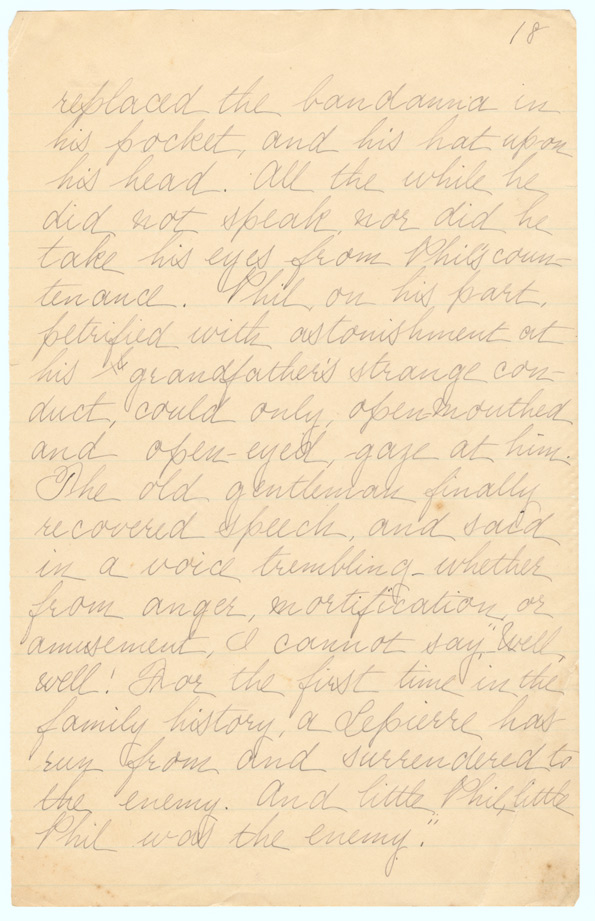 18
replaced the bandanna in
his pocket, and his hat upon
his head. All the while he
did not speak, nor did he
take his eyes from Phil's coun-
tenance. Phil, on his part,
petrified with astonishment at
his grandfather's strange con-
duct, could only, open-mouthed
and open-eyed, gaze at him.
The old gentleman finally
recovered speech, and said
in a voice trembling - whether
from anger, mortification, or
amusement, I cannot say, "Well,
well! For the first time in the
family history, a Lepierre has
run from and surrendered to
the enemy. And little Phil, little
Phil was the enemy."